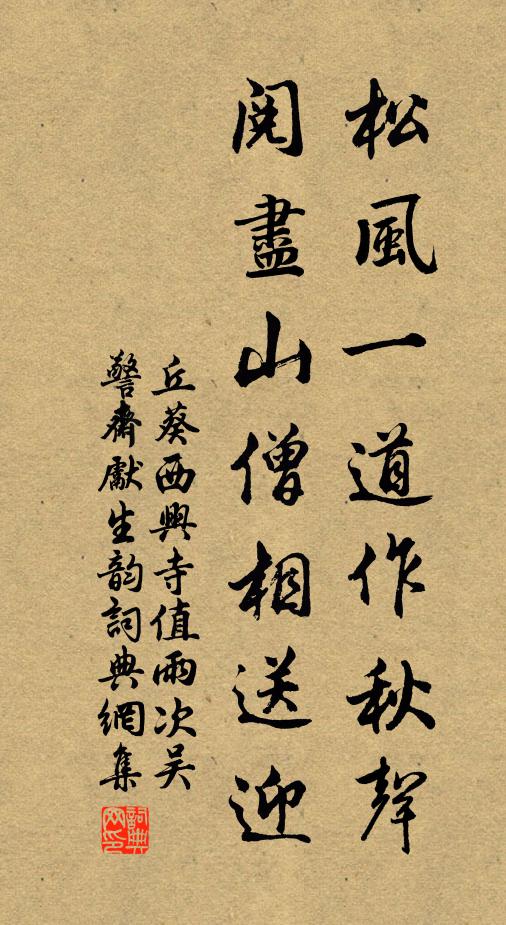 松風一道作秋聲
閱盡山僧相送迎
丘葵西興寺值雨次吳
警齋獻生韵詞典網集
詞典网印